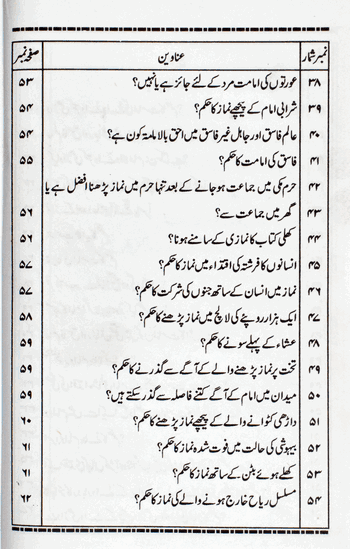 نمبر شمار عناوین صفحہ نمبر
۳۸ عورتوں کی امامت مرد کے لئے جائز ہے یا نہیں؟ ۵۳
۳۹ شرابی امام کے پیچھے نماز کا حکم؟ ۵۴
۴۰ عالم فاسق اور جاہل غیر فاسق میں احق بالامامۃ کون ہے؟ ۵۴
۴۱ فاسق کی امامت کا حکم؟ ۵۵
۴۲ حرم مکی میں جماعت ہوجانے کے بعد تنہا حرم میں نماز پڑھنا افضل ہے یا
۴۳ گھر میں جماعت سے؟ ۵۶
۴۴ کھلی کتاب کا نمازی کے سامنے ہونا؟ ۵۶
۴۵ انسانوں کا فرشتہ کی اقتداء میں نماز کا حکم؟ ۵۷
۴۶ نماز میں انسان کے ساتھ جنوں کی شرکت کا حکم؟ ۵۷
۴۷ ایک ہزار روپئے کی لالچ میں نماز پڑھنے کا حکم؟ ۵۸
۴۸ عشاء کے پہلے سونے کا حکم؟ ۵۹
۴۹ تخت پر نماز پڑھنے والے کے آگے سے گذرنے کا حکم؟ ۵۹
۵۰ میدان میں امام کے آگے کتنے فاصلہ سے گذر سکتے ہیں؟ ۵۹
۵۱ داڑھی کٹوانے والے کے پیچھے نماز پڑھنے کا حکم؟ ۶۰
۵۲ بیہوشی کی حالت میں فوت شدہ نماز کا حکم؟ ۶۱
۵۳ کھلے ہوئے بٹن کے ساتھ نماز کا حکم؟ ۶۱
۵۴ مسلسل ریاح خارج ہونے والے کی نماز کا حکم؟ ۶۲